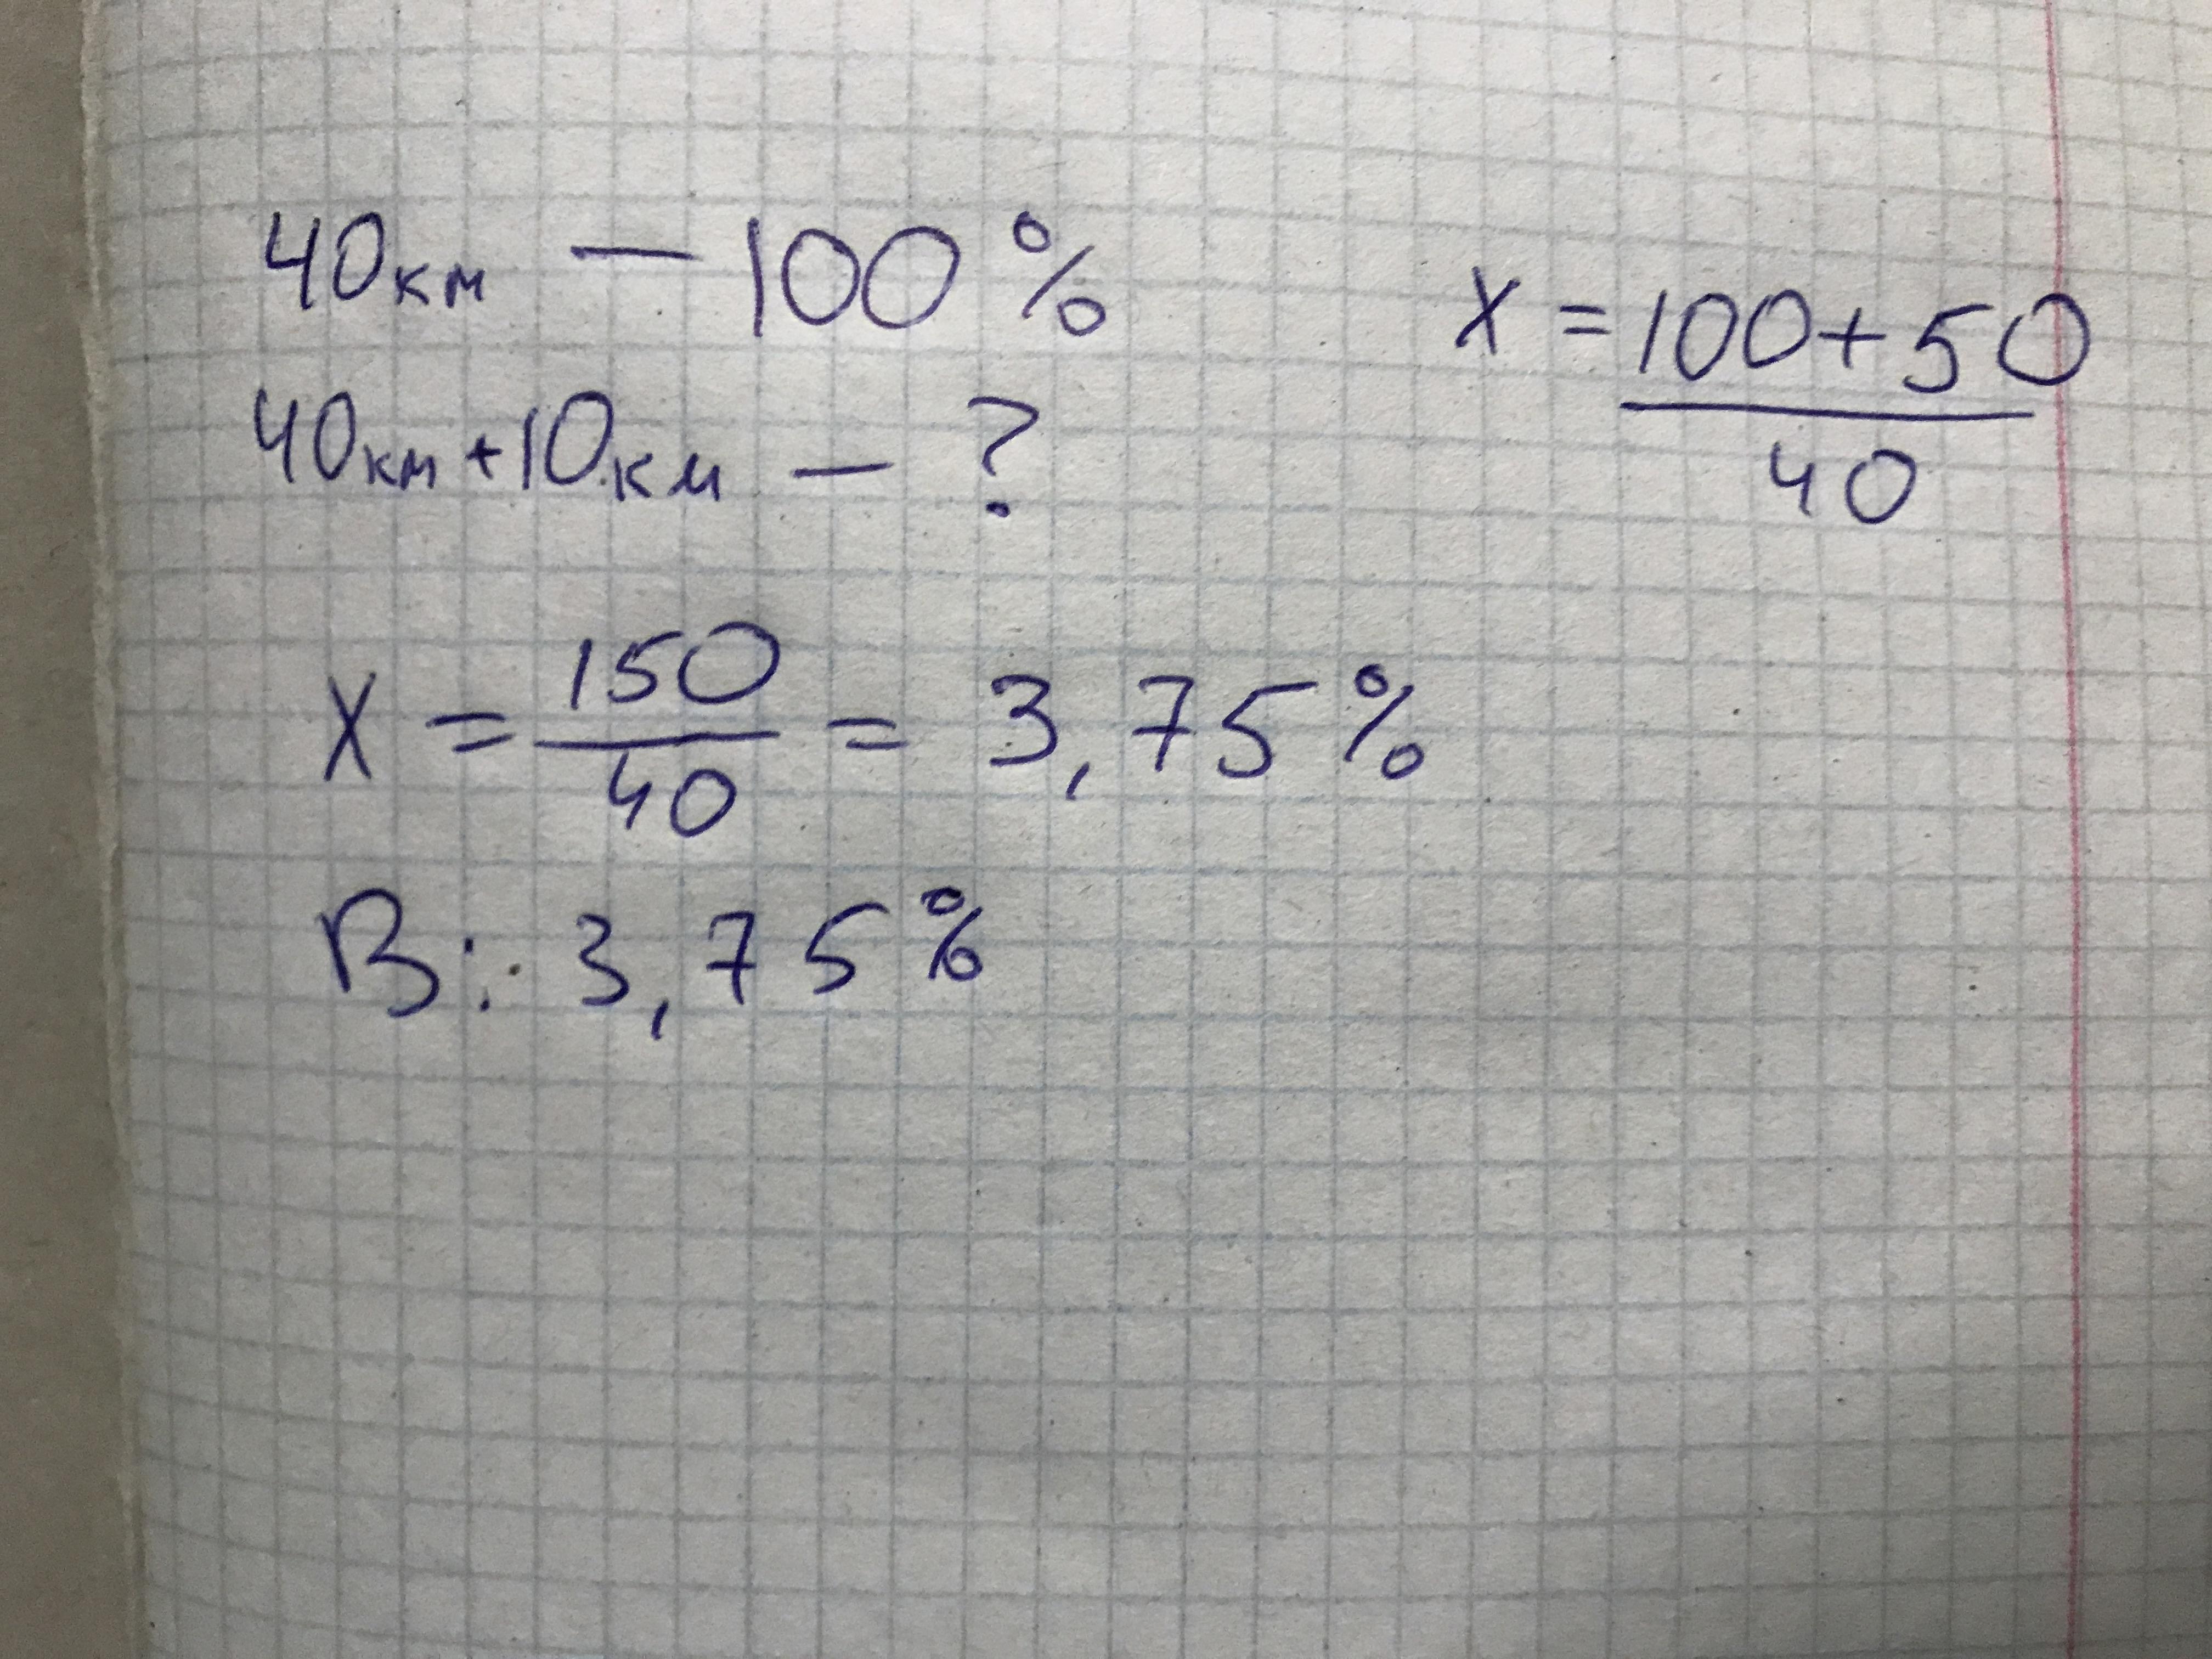 40км — 100%
40км+10км — ?
X = 100+50
40
X = 150/40 = 3,75%
В: 3,75%